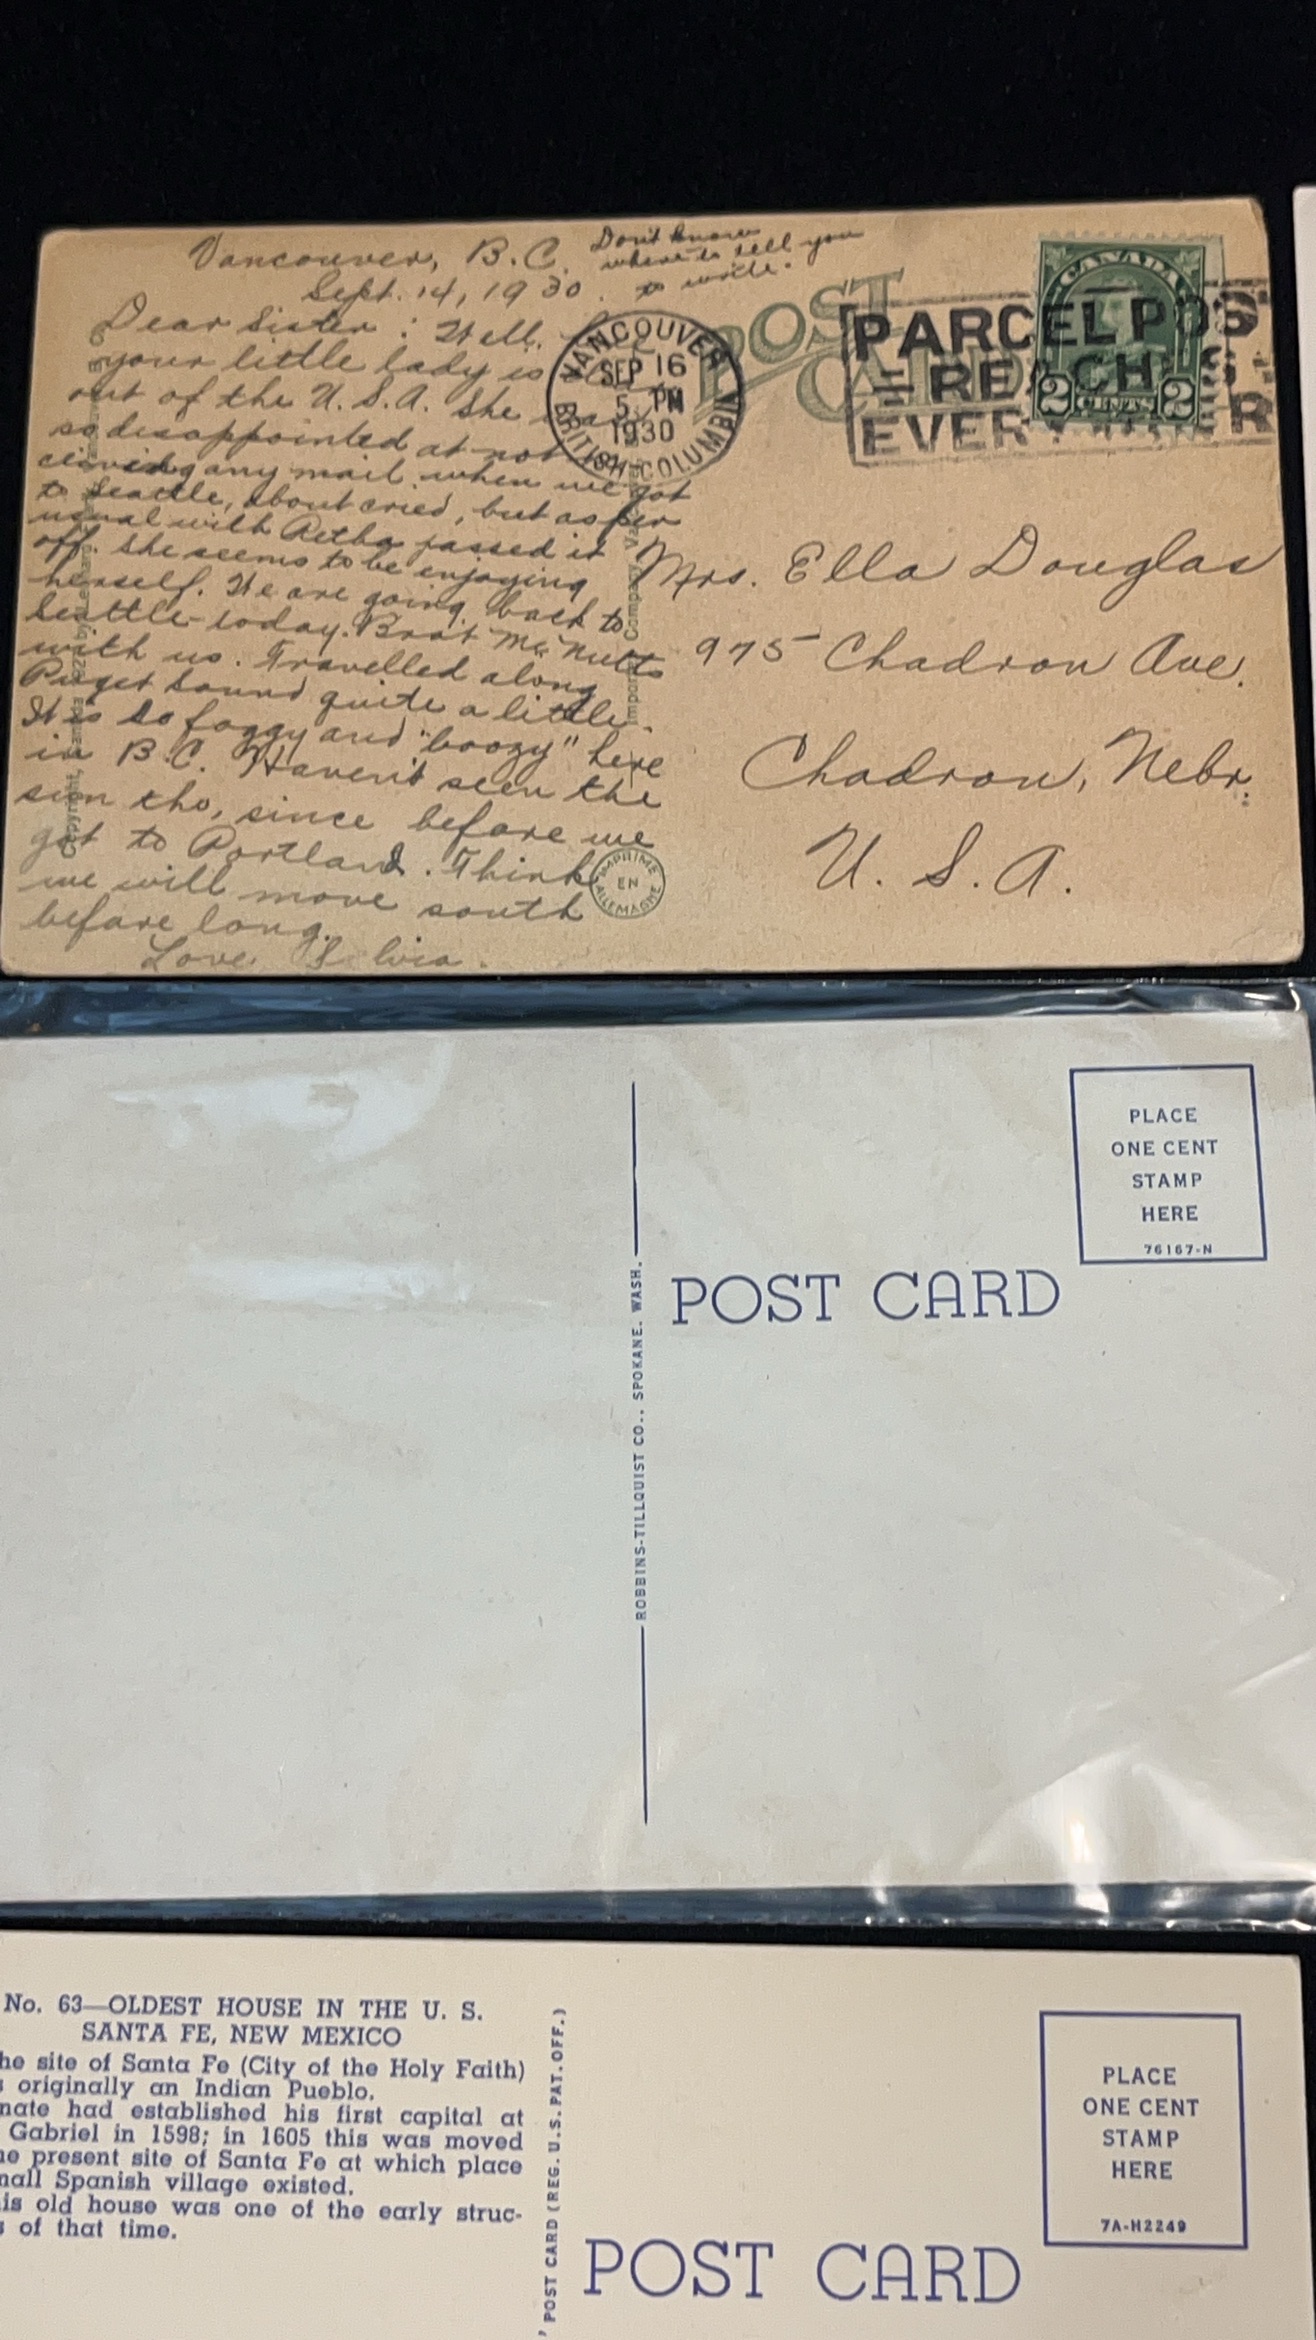 Vancouver, B.C.
Sept. 14, 1930.
Don't know
where to tell you
to write.
Dear Sister: Well
your little lady is
out of the U.S.A. She was
so disappointed at not re-
ceiving any mail when we got
to Seattle, about cried, but as per
usual with Aetha passed it
off. She seems to be enjoying
herself. We are going back to
Seattle today. Brot McNutts
with us. Travelled along
Puget Sound quite a little.
It is so foggy and "boozy" here
in B.C. Haven't seen the
sun tho, since before we
got to Portland. Think
we will move south
before long.
Love,
POST
CARD
VANCOUVER
SEP 16
5 PM
1930
BRITISH COLUMBIA
PARCEL POS
REACH
EVER
R
CANADA
2 CENTS 2
Mrs. Ella Douglas
975 Chadron Ave.
Chadron, Nebr.
U. S. A.
Copyright, Canada
Company
IMPRIMÉ
EN
ALLEMAGNE
PLACE
ONE CENT
STAMP
HERE
76167-N
POST CARD
ROBBINS-TILLQUIST CO., SPOKANE, WASH.
No. 63—OLDEST HOUSE IN THE U. S.
SANTA FE, NEW MEXICO
he site of Santa Fe (City of the Holy Faith)
s originally an Indian Pueblo.
nate had established his first capital at
Gabriel in 1598; in 1605 this was moved
he present site of Santa Fe at which place
mall Spanish village existed.
is old house was one of the early struc-
s of that time.
POST CARD (REG. U.S. PAT. OFF.)
PLACE
ONE CENT
STAMP
HERE
7A-H2249
POST CARD